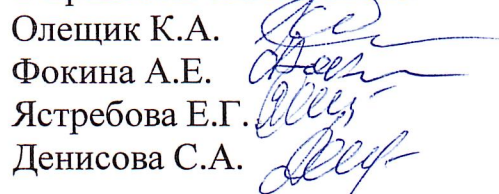 Олещик К.А.
Фокина А.Е.
Ястребова Е.Г.
Денисова С.А.